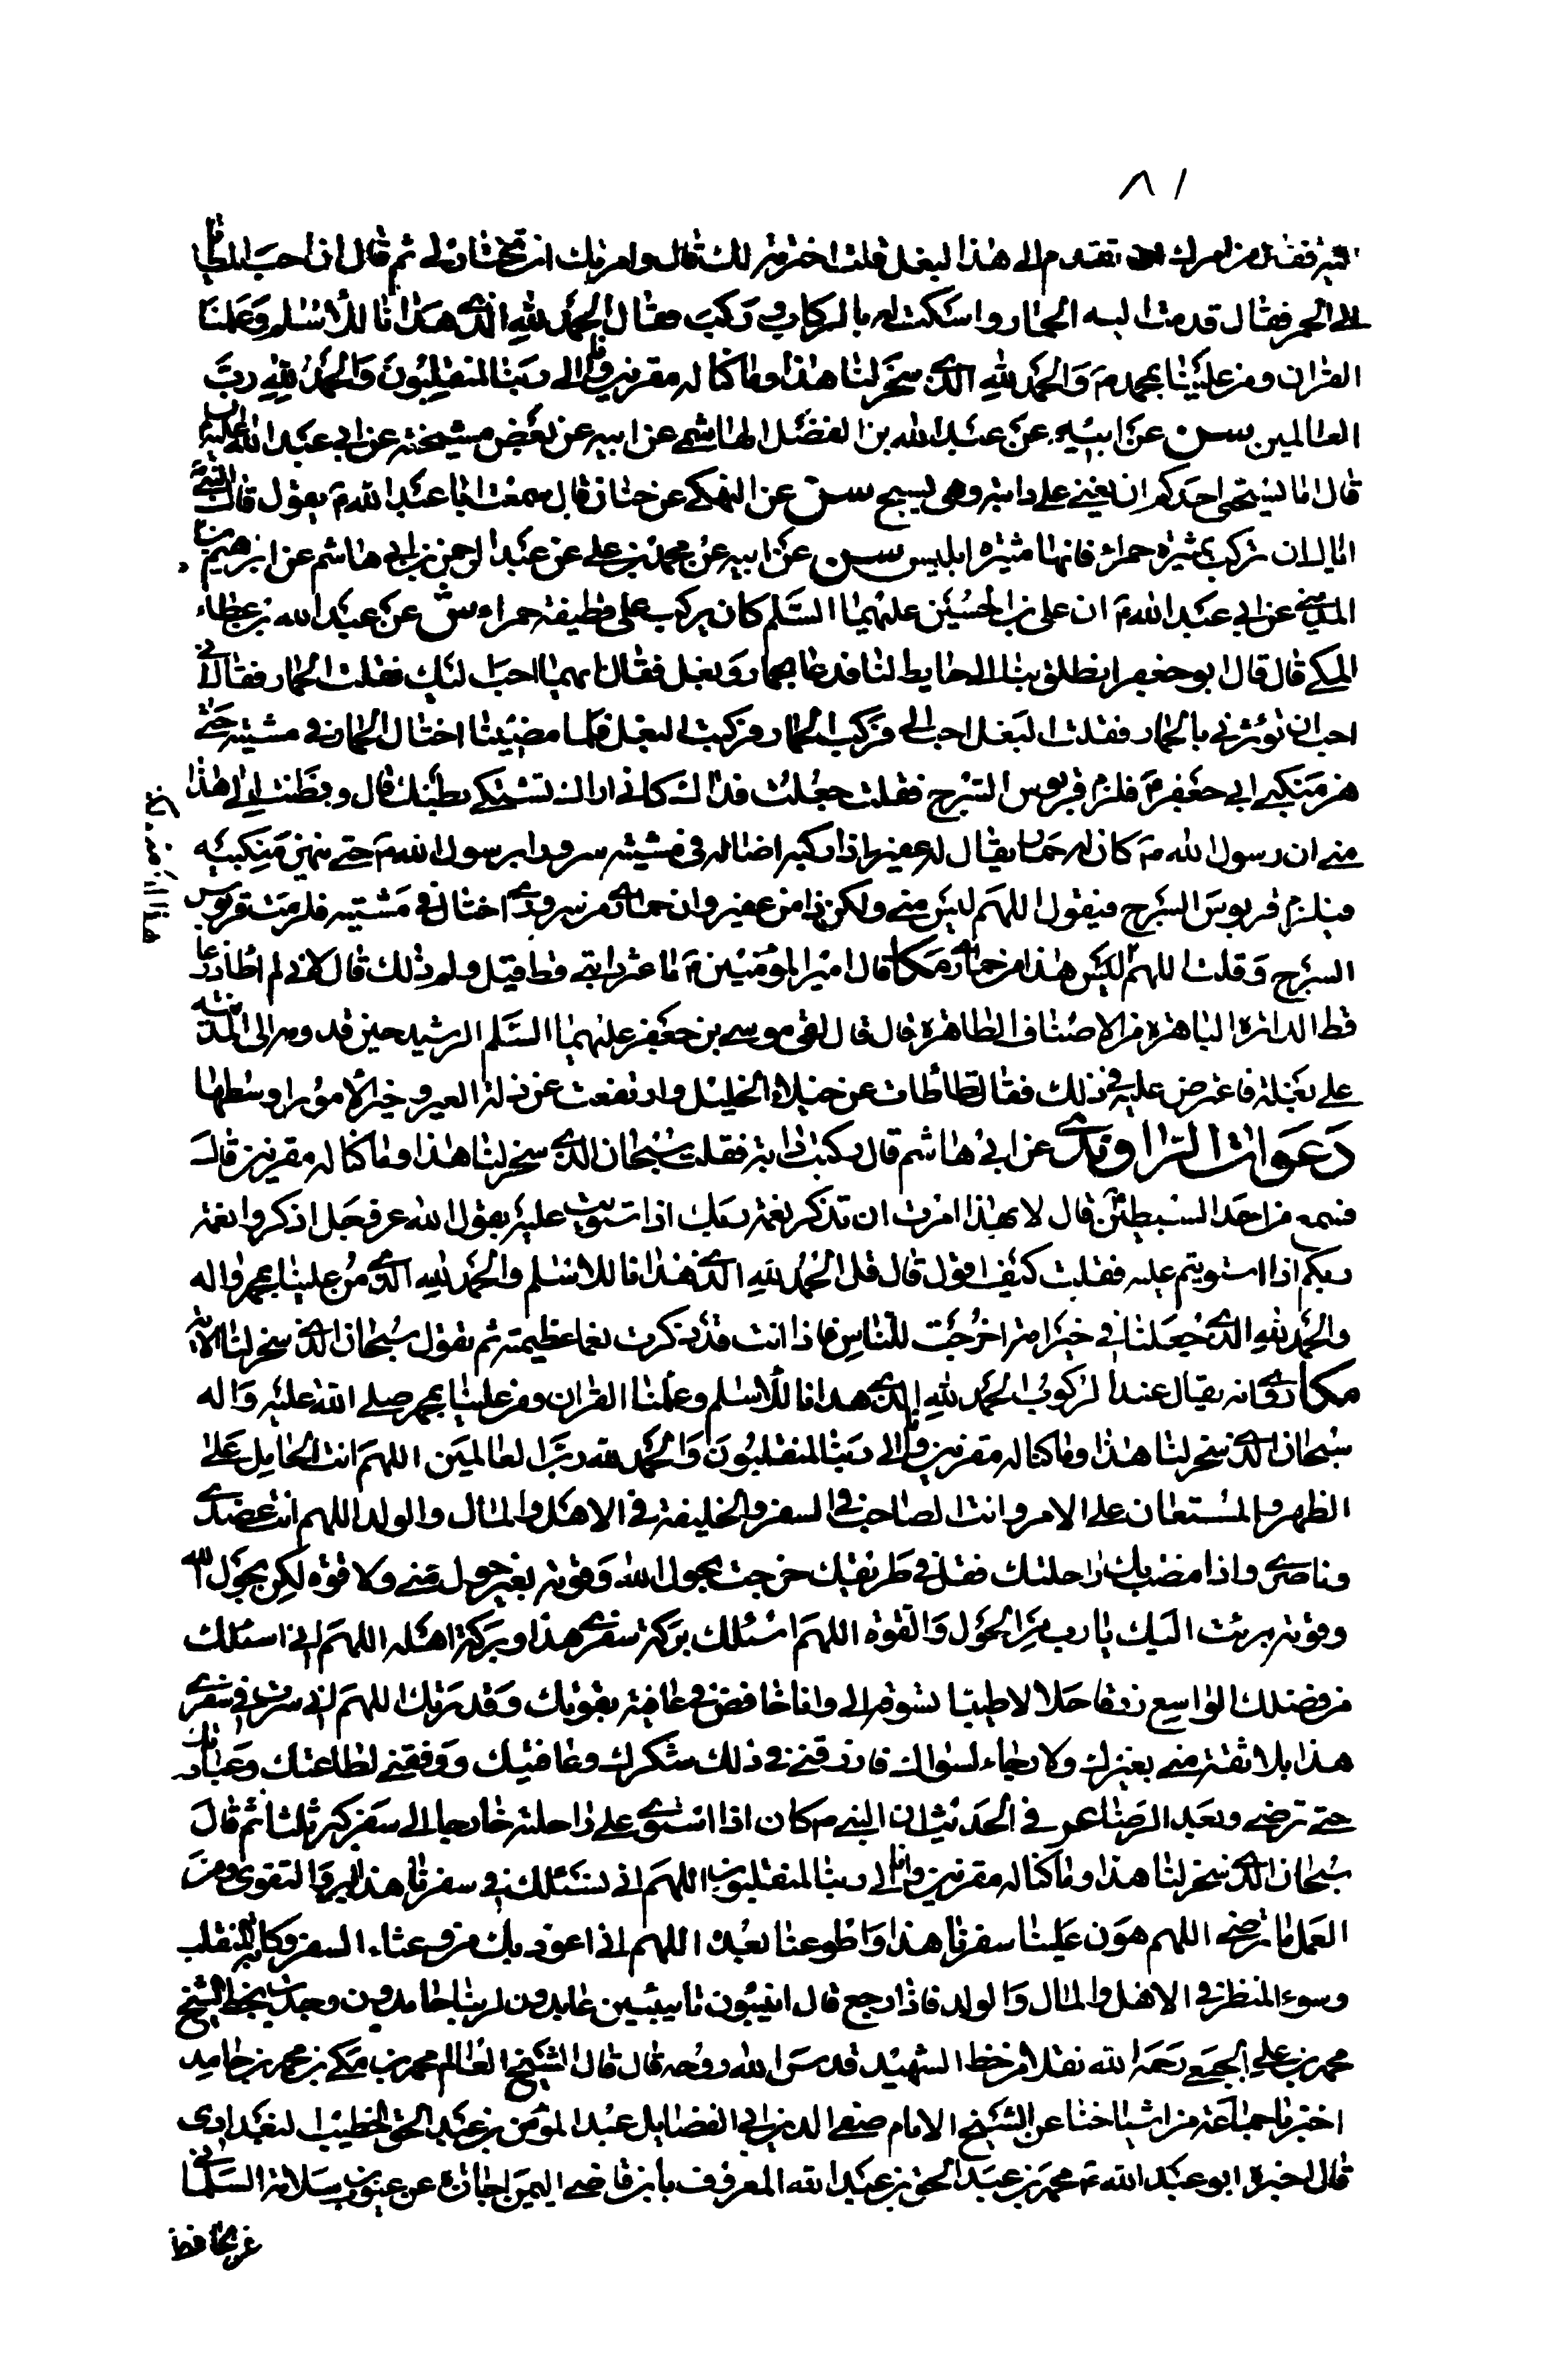 ٨١
فقال من امرك ان تقدم الى هذا البغل قلت اخترته لك قال وامرتك ان تختار لى ثم قال ان احب المطايا
الى الحمر فقال قدمت اليه الحمار وامسكت له بالركاب وركب فقال الحمد لله الذى هدانا للاسلم وعلمنا
القران ومن علينا بمحمد م والحمد لله الذى سخر لنا هذا وما كنا له مقرنين وانا الى ربنا لمنقلبون والحمد لله رب
العالمين سن عن ابيه عن عبد الله بن الفضل الهاشمى عن ابيه عن بعض مشيخته عن ابى عبد الله عليه السلم
قال اما يستحى احدكم ان يغنى على دابته وهى تسبح سن عن النهيكى عن حنان قال سمعت ابا عبد الله م يقول قال النبى
اياك ان تركب ميثرة حمراء فانها ميثرة ابليس سن عن ابيه عن محمد بن على عن عبد الرحمن بن ابى هاشم عن ابرهيم بن
المدينى عن ابى عبد الله م ان على بن الحسين عليهما السلم كان يركب على قطيفة حمراء ش عن عبد الله بن عطاء
المكى قال قال ابو جعفر انطلق بنا الى حايط لنا فدعا بحمار وبغل فقال ايهما احب اليك فقلت الحمار فقال انى
احب ان تؤثرنى بالحمار فقلت البغل احب الى فركب الحمار وركبت البغل فلما مضينا اختال الحمار فى مشيته حتى
هز منكبى ابى جعفر م فلزم قربوس السرج فقلت جعلت فداك كانى اراك تشتكى بطنك قال وفطنت الى هذا
منى ان رسول الله م كان له حمار يقال له عفير اذا ركبه اختال فى مشيته سرورا برسول الله م حتى يهز منكبيه
فيلزم قربوس السرج فيقول اللهم ليس منى ولكن ذا من عفير وان حمارى من سروره اختال فى مشيته فلزمت قربوس
السرج وقلت اللهم ليس هذا منى حمارى مكا قال امير المؤمنين م ما عثرت دابتى قط قيل ولم ذلك قال لانى لم اطأ زرعا
قط الدرة الباهرة من الاصداف الطاهرة قال قال لقى موسى بن جعفر عليهما السلم الرشيد حين قدومه الى المدينة
على بغلة فاعترض عليه فى ذلك فقال تطأطات عن خيلاء الخيل وارتفعت عن ذلة العير وخير الامور اوسطها
دعوات الراوندى عن ابى هاشم قال ركبت دابة فقلت سبحان الذى سخر لنا هذا وما كنا له مقرنين قال
فسمع من احد السبطين قال لا بهذا امرت ان تذكر نعمة ربك اذا استويت عليه يقول الله عز وجل اذكروا نعمة
ربكم اذا استويتم عليه فقلت كيف اقول قال قل الحمد لله الذى هدانا للاسلم والحمد لله الذى من علينا بمحمد واله
والحمد لله الذى جعلنا فى خير امة اخرجت للناس فاذا انت قد ذكرت نعما عظيمة ثم تقول سبحان الذى سخر لنا الاية
مكا روى انه يقال عند الركوب الحمد لله الذى هدانا للاسلم وعلمنا القران ومن علينا بمحمد صلى الله عليه واله
سبحان الذى سخر لنا هذا وما كنا له مقرنين وانا الى ربنا لمنقلبون والحمد لله رب العالمين اللهم انت الحامل على
الظهر والمستعان على الامر وانت الصاحب فى السفر والخليفة فى الاهل والمال والولد اللهم انت عضدى
وناصرى واذا مضت بك راحلتك فقل فى طريقك خرجت بحول الله وقوته بغير حول منى ولا قوة لكن بحول الله
وقوته برئت اليك يا رب من الحول والقوة اللهم اسئلك بركة سفرى هذا وبركة اهله اللهم انى اسئلك
من فضلك الواسع رزقا حلالا طيبا تسوقه الى وانا خافض فى عافية بقوتك وقدرتك اللهم انى سرت فى سفرى
هذا بلا ثقة منى بغيرك ولا رجاء لسواك فارزقنى فى ذلك شكرك وعافيتك ووفقنى لطاعتك وعبادتك
حتى ترضى وبعد الرضا عو فى الحديث ان النبى م كان اذا استوى على راحلته خارجا الى سفر كبر ثلثا ثم قال
سبحان الذى سخر لنا هذا وما كنا له مقرنين وانا الى ربنا لمنقلبون اللهم انى نسئلك فى سفرنا هذا البر والتقوى ومن
العمل ما ترضى اللهم هون علينا سفرنا هذا واطو عنا بعده اللهم انى اعوذ بك من وعثاء السفر وكابة المنقلب
وسوء المنظر فى الاهل والمال والولد فاذا رجع قال ائبون تائبين عابدون لربنا حامدون وجدت بخط الشيخ
محمد بن على الجبعى رحمه الله نقلا من خط الشهيد قدس الله روحه قال قال الشيخ العالم محمد بن مكى بن محمد بن حامد
اخبرنا جماعة من اشياخنا عن الشيخ الامام صفى الدين ابى الفضايل عبد المؤمن بن عبد الحق الخطيب البغدادى
قال اخبرنا ابو عبد الله محمد بن عبد الحق بن عبد الله المعروف بابن قاضى اليمن اجازة عن عتيق بن سلامة السلمانى
عن الحافظ